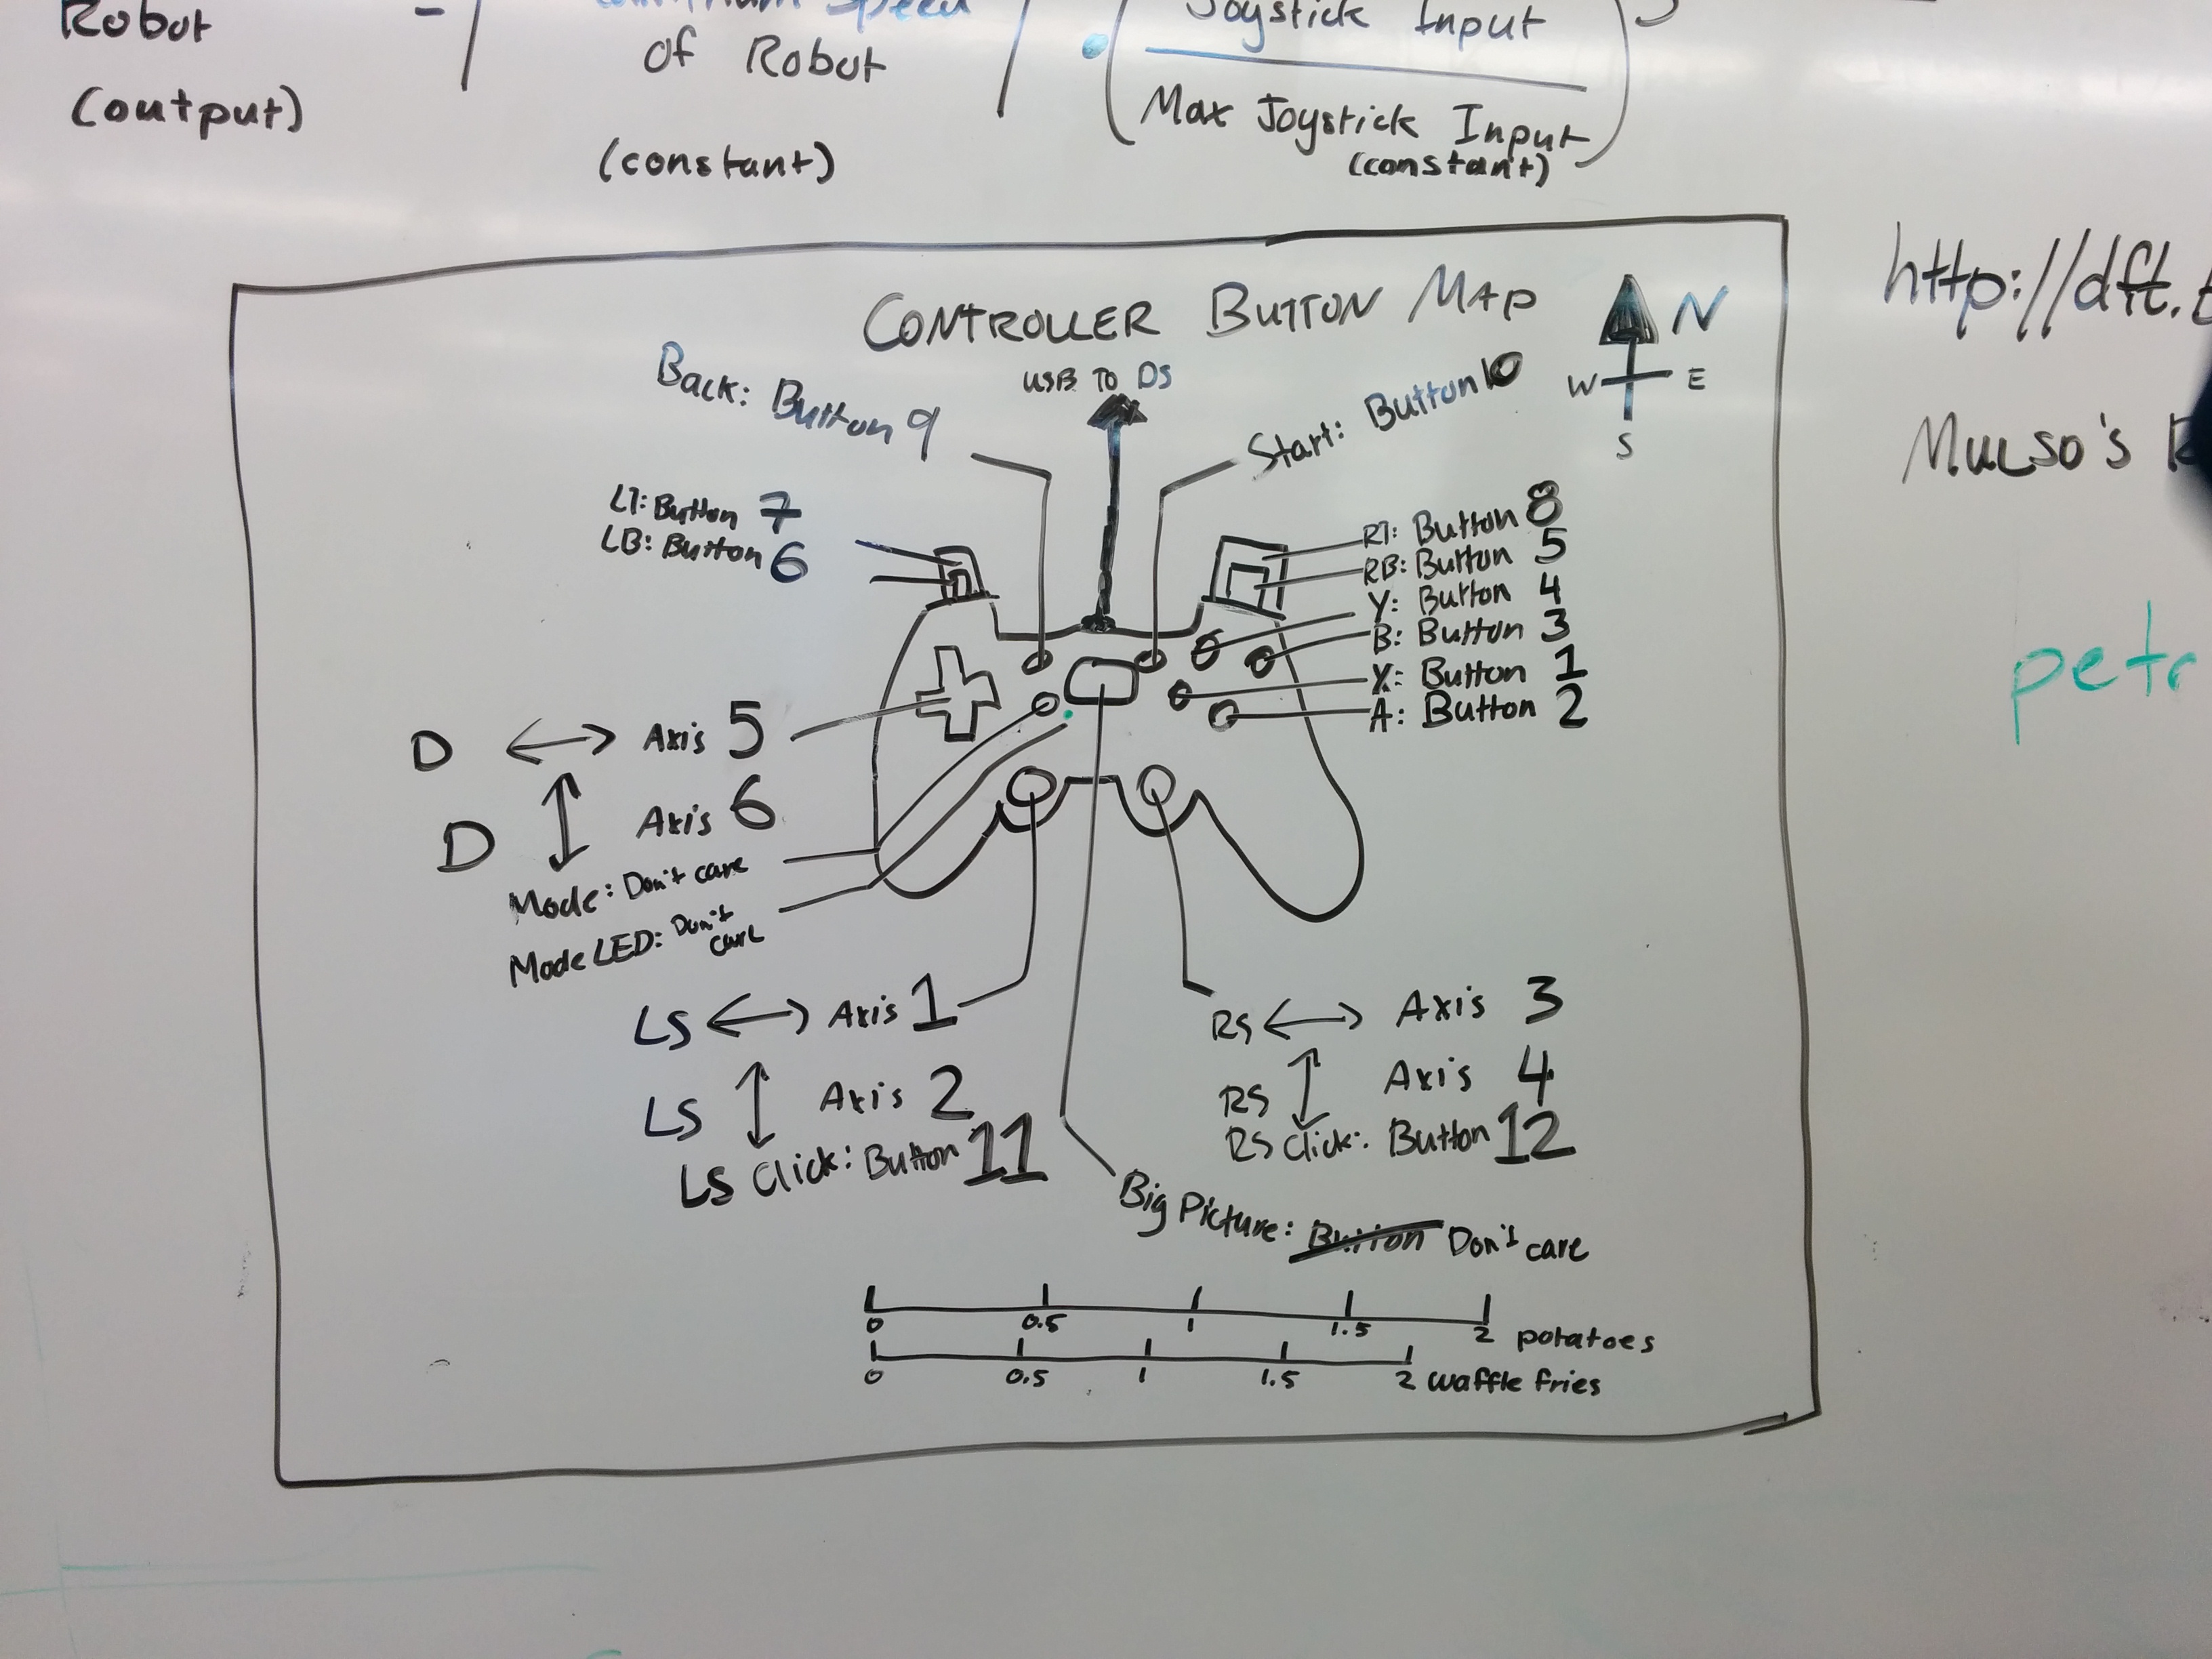 Robot
(output)
of Robot
(constant)
Joystick Input
Max Joystick Input
(constant)
http://dft.
Mulso's
petr
CONTROLLER BUTTON MAP
N
W E
S
USB TO DS
Back: Button 9
Start: Button 10
LT: Button 7
LB: Button 6
RT: Button 8
RB: Button 5
Y: Button 4
B: Button 3
X: Button 1
A: Button 2
D ↔ Axis 5
D ↕ Axis 6
Mode: Don't care
Mode LED: Don't care
LS ↔ Axis 1
LS ↕ Axis 2
LS Click: Button 11
RS ↔ Axis 3
RS ↕ Axis 4
RS Click: Button 12
Big Picture: Button Don't care
0 0.5 1 1.5 2 potatoes
0 0.5 1 1.5 2 waffle fries